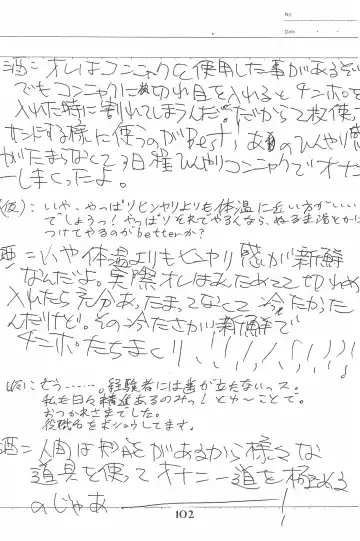 No.
Date
酒＝オレはコンニャクを使用した事があるぞい
でもコンニャクに切れ目を入れるとチンポを
入れた時に割れてしまうんだ。だから2枚使い
サンドする様に使うのがBest！あのひんやり感
がたまらなくて3日程ひんやりコンニャクでオナ
ーしまくったよ。
(仮)：いや、やっぱりヒンヤリよりも体温に近い方がいい
でしょうっ！やっぱりそれでやるくなら、ぬるま湯とかに
つけてやるのがbetterか？
酒＝いや体温よりもヒンヤリ感が新鮮
なんだよ。実際オレはあたためて切れ目
入れたら充分あったまってなくて冷たかった
んだけど。その冷たさが新鮮で
チンポたちまくり
(仮)：そう……。経験者には歯が立たないっス。
私も日々精進あるのみっ！とゆ〜ことで。
おつかれさまでした。
役職名をボシュウしてます。
酒＝人間は知能があるから様々な
道具を使ってオナニー道を極める
のじゃあ――！
102